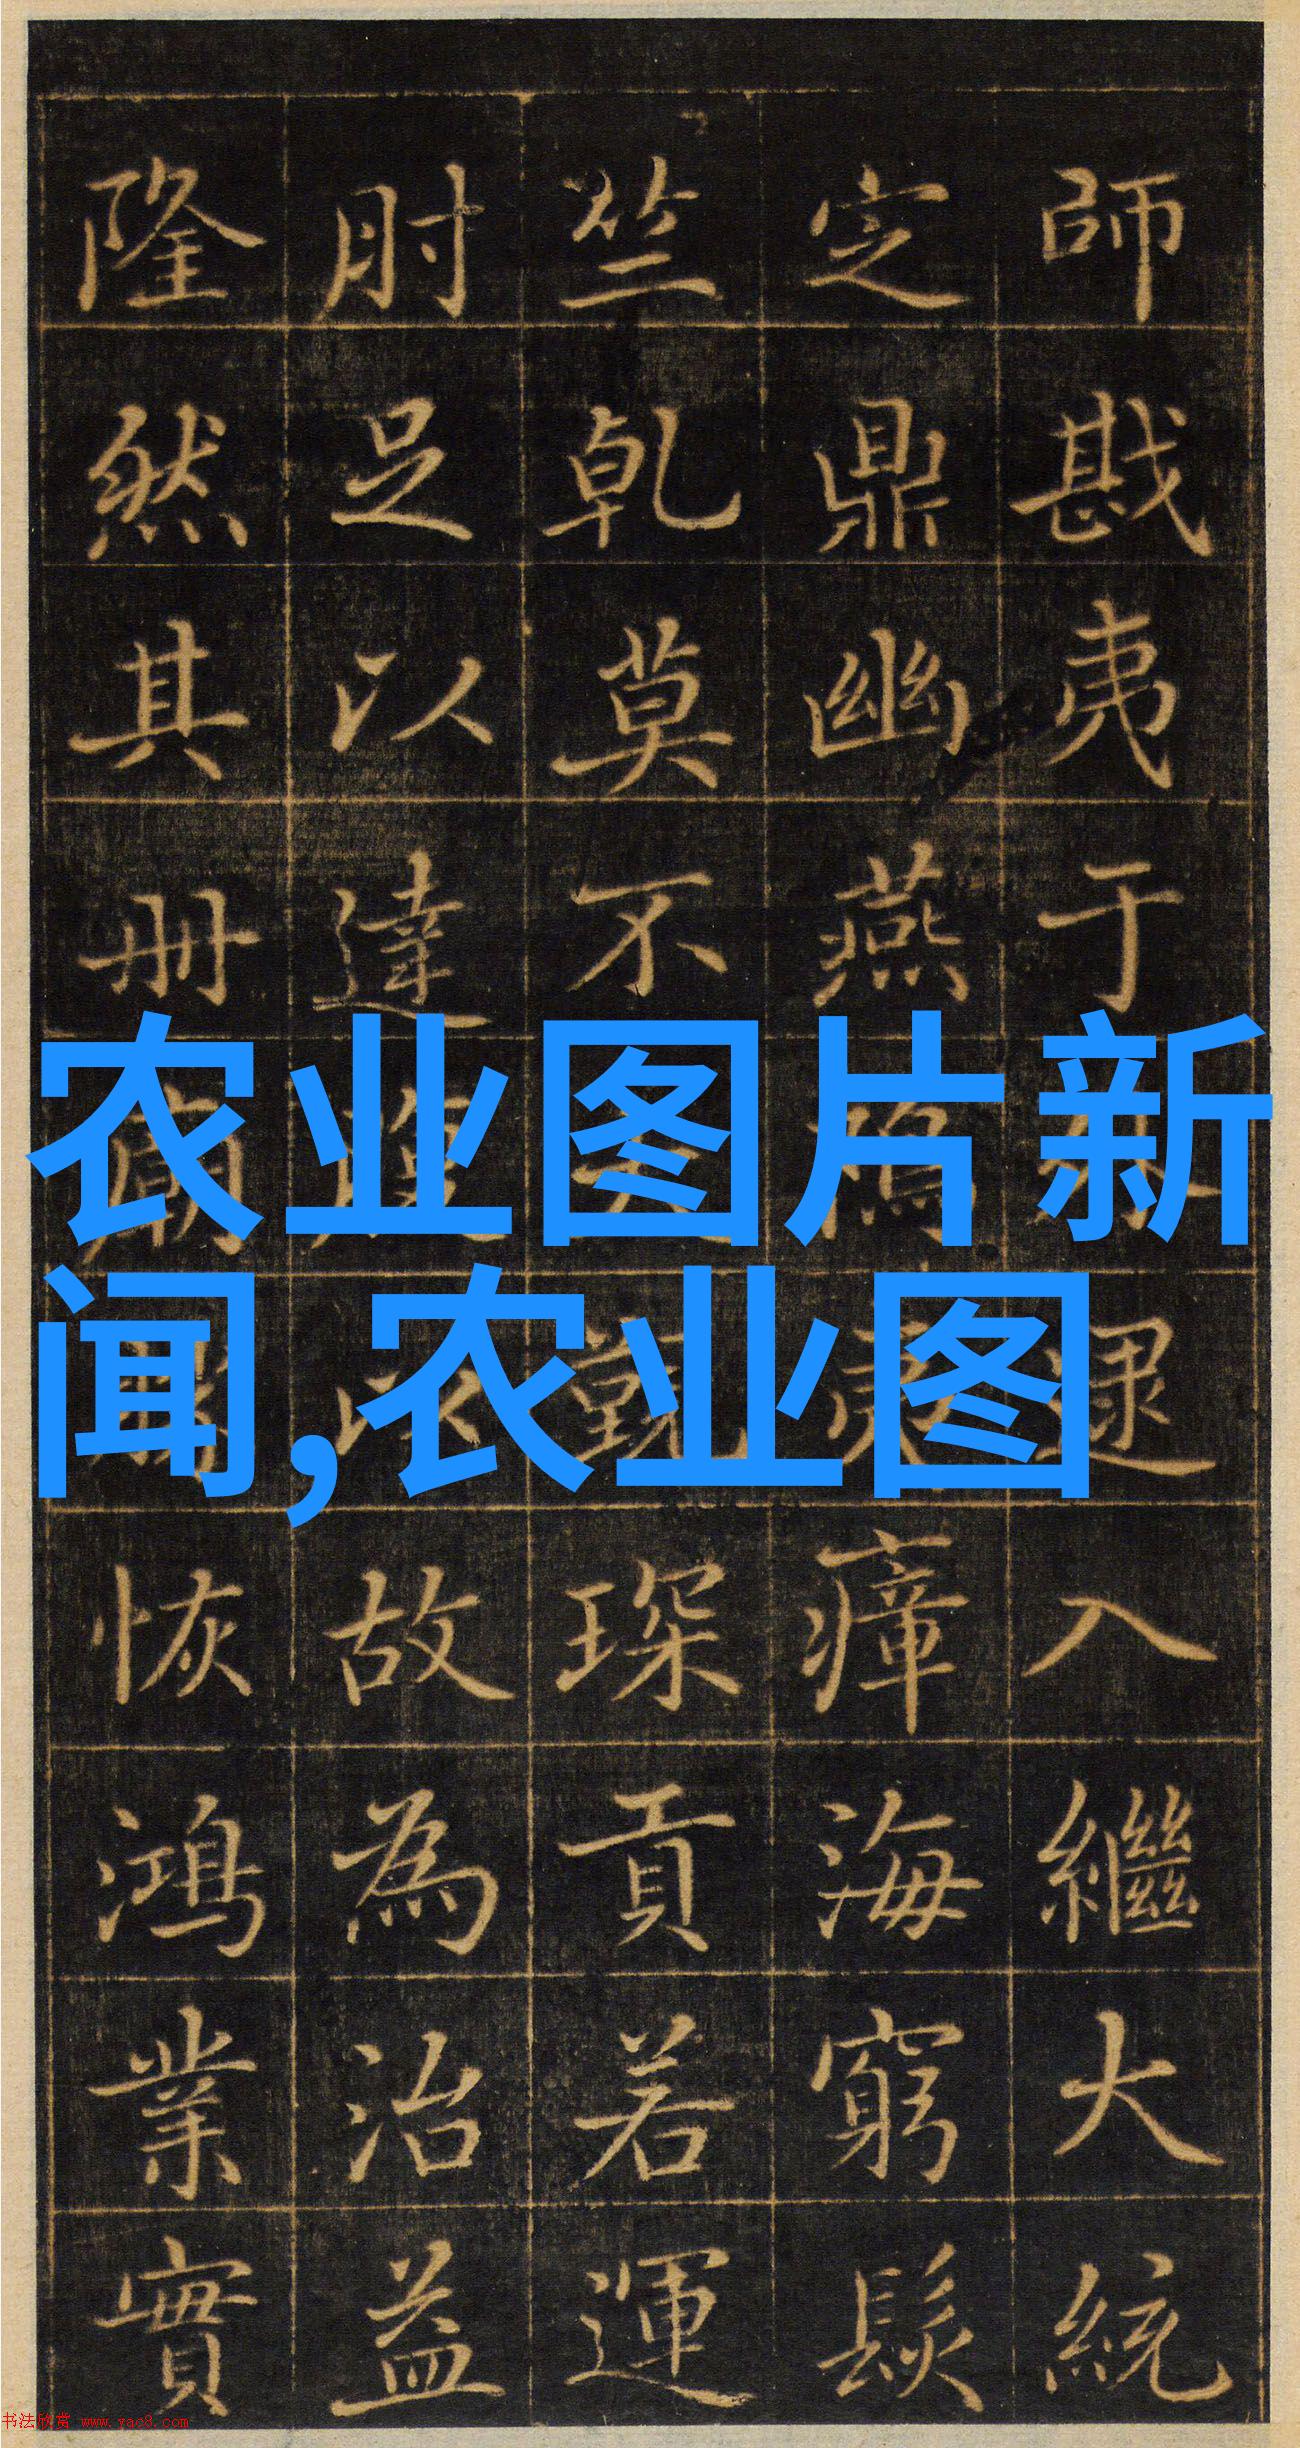 師戡夷于逮入繼大統
定鼎幽燕瘴海窮髮
竺乾莫不琛貢若運
肘足以達以故為治益
隆然其册廟恢鴻業實
农业图片新
闻,农业图
书法欣赏 www.yac8.com